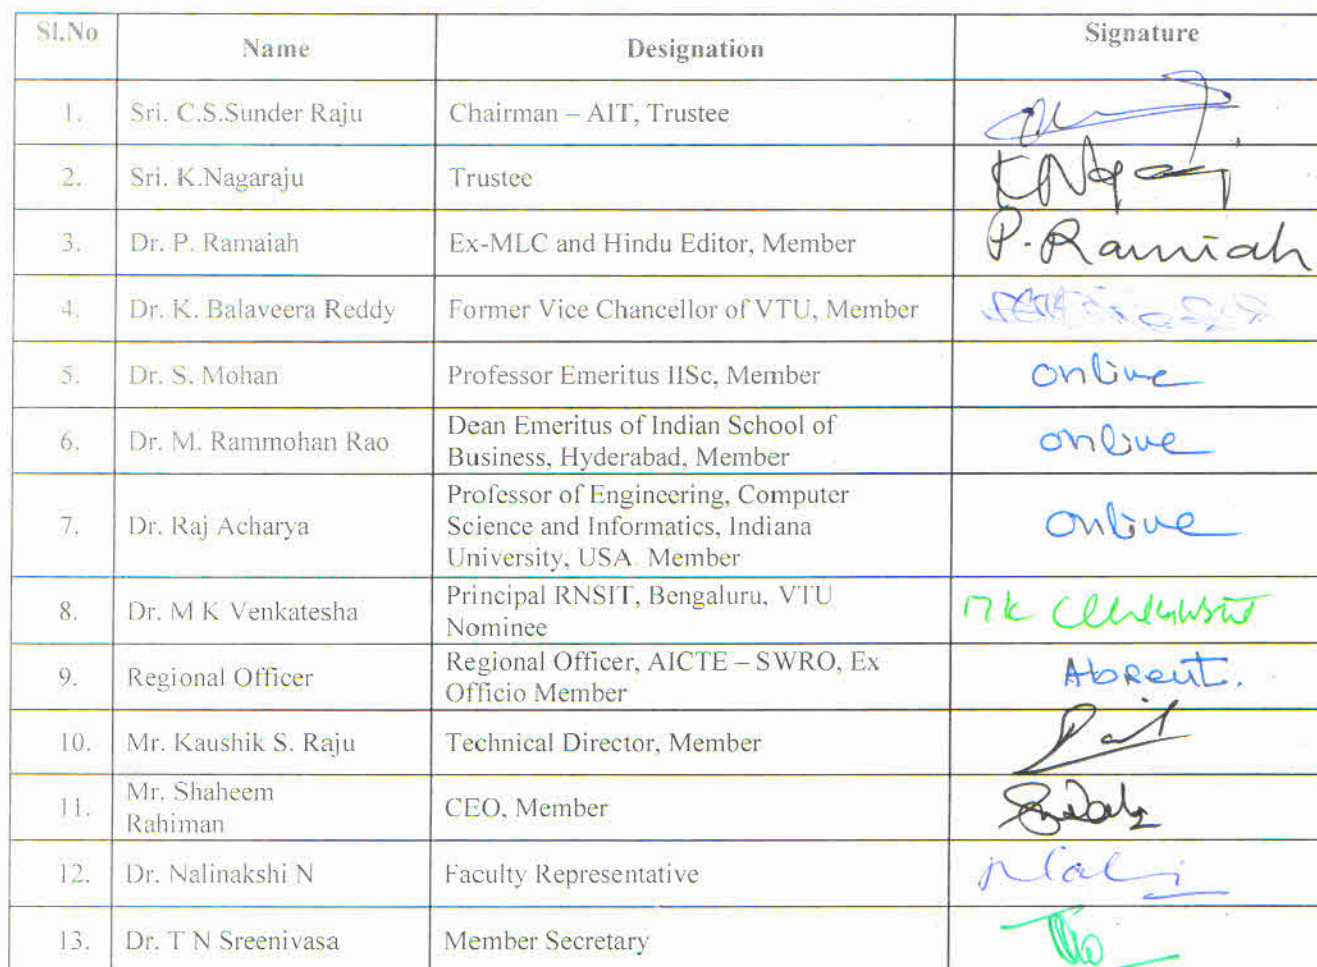 Sl.No Name Designation Signature
1. Sri. C.S.Sunder Raju Chairman – AIT, Trustee
2. Sri. K.Nagaraju Trustee
3. Dr. P. Ramaiah Ex-MLC and Hindu Editor, Member P. Ramiah
4. Dr. K. Balaveera Reddy Former Vice Chancellor of VTU, Member
5. Dr. S. Mohan Professor Emeritus IISc, Member online
6. Dr. M. Rammohan Rao Dean Emeritus of Indian School of
Business, Hyderabad, Member online
7. Dr. Raj Acharya Professor of Engineering, Computer
Science and Informatics, Indiana
University, USA. Member online
8. Dr. M K Venkatesha Principal RNSIT, Bengaluru, VTU
Nominee MK
9. Regional Officer Regional Officer, AICTE – SWRO, Ex
Officio Member Absent.
10. Mr. Kaushik S. Raju Technical Director, Member
11. Mr. Shaheem
Rahiman CEO, Member
12. Dr. Nalinakshi N Faculty Representative
13. Dr. T N Sreenivasa Member Secretary